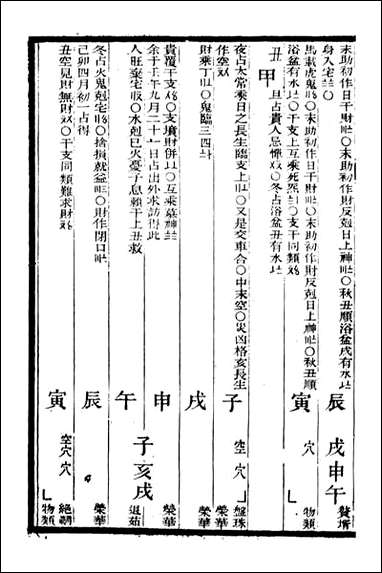 末助初作日干財〇末助初作財反剋日上神〇秋丑順浴盆戌有水
身入宅〇
辰 戌申午 贅壻
馬載虎鬼〇末助初作日干財〇末助初作財反剋日上神〇秋丑順
浴盆有水〇干支上互乘死炁〇支干同類
寅 穴 物類
丑 甲 旦占貴人忌憚〇冬占浴盆丑有水
夜占太常乘日之長生臨支上〇又是交車合〇中末空〇災凶格亥長生
作空
子 空穴 盤珠 榮華
財乘丁〇鬼臨三四
戌 榮華
貴覆干支〇支墳財併〇互乘墓神
申 榮華
余于壬午九月二十一日占出外求訪得此
人旺棄宅〇水剋巳火憂子息賴干上丑救
午 子亥戌 退茹
冬占火鬼剋宅〇捨損就益〇財作閉口
辰 榮華
己卯四月初一占得
丑空見財無財〇干支同類難求財
寅 空穴穴 絕嗣 物類